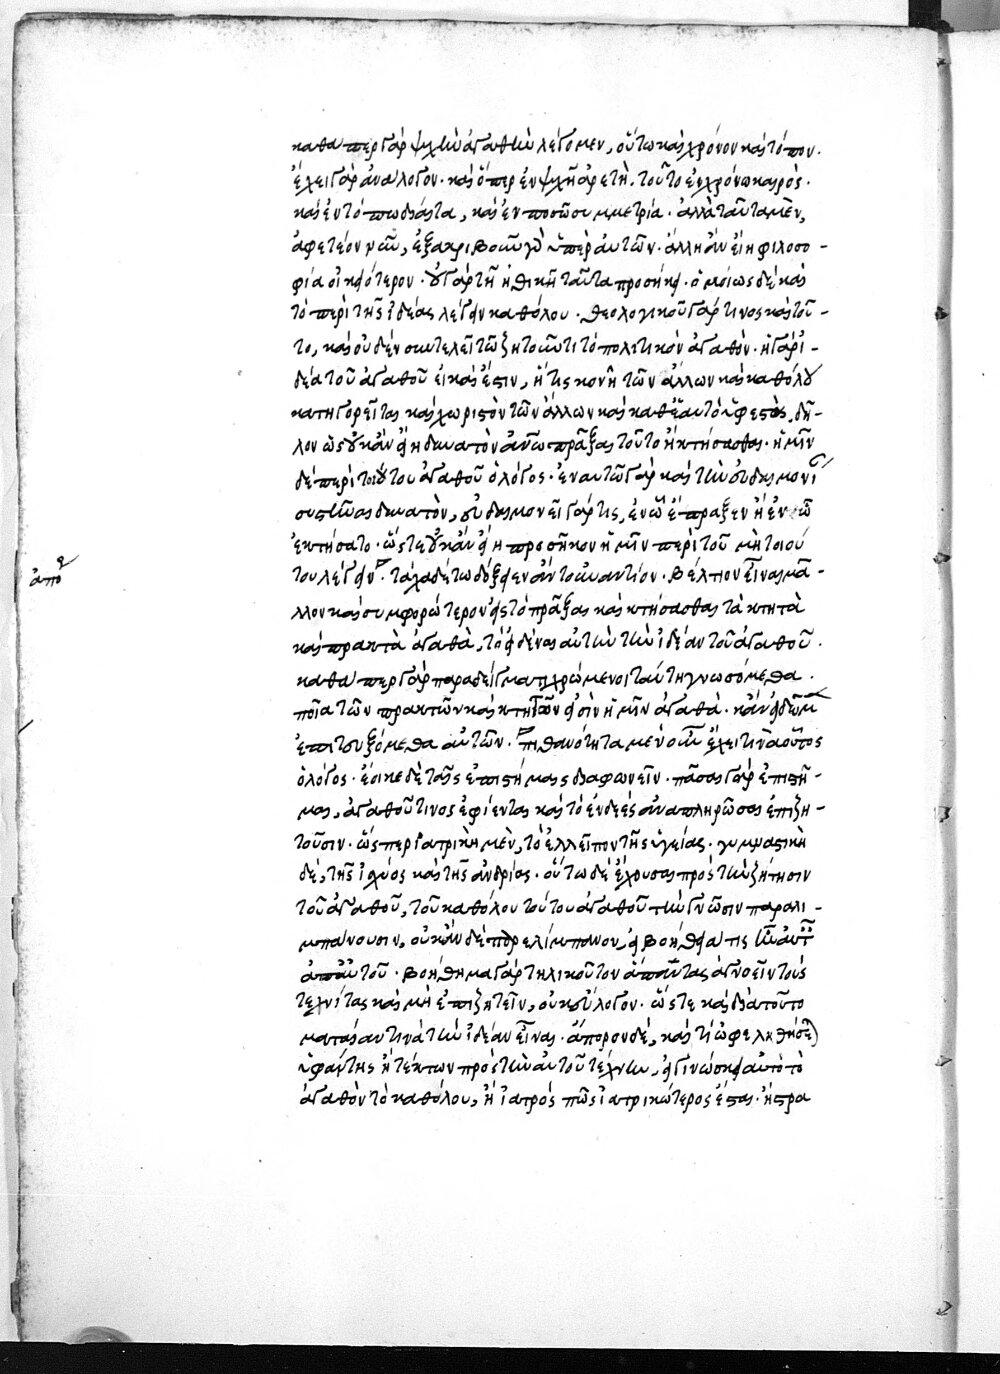 καθάπερ γὰρ ψυχὴν ἀγαθὴν λέγομεν, οὕτω καὶ χρόνον καὶ τόπον.
ἔχει γὰρ ἀνάλογον· καὶ ὅπερ ἐν ψυχῇ ἀρετὴ. τοῦτο ἐν χρόνω καιρὸς·
καὶ ἐν τόπω δίαιτα, καὶ ἐν ποσῶ συμμετρία· ἀλλὰ ταῦτα μὲν,
ἀφετέον νῦν, ἐξακριβοῦν γὰρ ὑπὲρ αὐτῶν· ἄλλη ἂν εἴη φιλοσο-
φία οἰκειότερον· οὐ γὰρ τῆ ἠθικῆ ταῦτα προσήκει· ὁμοίως δὲ καὶ
τὸ περὶ τῆς ἰδέας λέγειν καθόλου· θεολογικοῦ γάρ τινος καὶ τοῦ-
το, καὶ οὐδὲν συντελεῖ τῶ ζητοῦντι τὸ πολιτικὸν ἀγαθὸν· ἡ γὰρ ἰ-
δέα τοῦ ἀγαθοῦ εἰ καὶ ἔστιν, ἥτις κοινῆ τῶν ἄλλων καὶ καθόλου
κατηγορεῖται καὶ χωριστὸν τῶν ἄλλων καὶ καθ' ἑαυτὸ ὑφεστὸς, δῆ-
λον ὡς οὐκ ἂν εἴη δυνατὸν ἀνω πρᾶξαι τοῦτο ἢ κτήσασθαι· ἡμῖν
δὲ περὶ τοιούτου ἀγαθοῦ ὁ λόγος· ἐν αυτῶ γὰρ καὶ τὴν εὐδαιμονί
συστῆναι δυνατὸν, εὐδαιμονεῖ γάρ τις, ἐν ὧ ἔπραξεν ἢ ἐν ὧ
ἐκτήσατο· ὥστε οὐκ ἂν εἴη προσῆκον ἡμῖν περὶ τοῦ μὴ τοιού
του λέγειν· τάχα δέ τω δόξειεν ἂν τοὐναντίον· βέλτιον εἶναι μᾶ-
λλον καὶ συμφορώτερον εἰς τὸ πρᾶξαι καὶ κτήσασθαι τὰ κτητὰ
καὶ πρακτὰ ἀγαθὰ, τὸ εἰδέναι αὐτὴν τὴν ἰδέαν τοῦ ἀγαθοῦ.
καθάπερ γὰρ παραδείγματι χρώμενοι ταύτη γνωσόμεθα.
ποῖα τῶν πρακτῶν καὶ κτητῶν εἰσὶν ἡμῖν ἀγαθὰ· κἂν εἰδῶμεν
ἐπιτευξόμεθα αὐτῶν· πιθανότητα μὲν οὖν ἔχει τινὰ οὗτος
ὁ λόγος· ἔοικε δὲ ταῖς ἐπιστήμαις διαφωνεῖν· πᾶσαι γὰρ ἐπιστῆ-
μαι, ἀγαθοῦ τινος ἐφίενται καὶ τὸ ἐνδεὲς ἀναπληρῶσαι ἐπιζη-
τοῦσιν· ὥσπερ ἰατρικὴ μὲν, τὸ ἐλλεῖπον τῆς ὑγείας· γυμναστικὴ
δὲ, τῆς ἰσχύος καὶ τῆς ἀνδρίας· οὕτω δὲ ἔχουσαι πρὸς τὴν ζήτησιν
τοῦ ἀγαθοῦ, τοῦ καθόλου τούτου ἀγαθοῦ τὴν γνῶσιν παραλι-
μπάνουσιν, οὐκ ἂν δέ παρελίμπανον, εἰ βοήθειά τις
ἀπ' αὐτοῦ· βοήθημα γὰρ τηλικοῦτον ἅπαντας ἀγνοεῖν τοὺς
τεχνίτας καὶ μὴ ἐπιζητεῖν, οὐκ εὔλογον· ὥστε καὶ διὰ τοῦτο
ματαίαν τινὰ τὴν ἰδέαν εἶναι· ἄπορον δὲ, καὶ τί ὠφεληθήσε
ὑφάντης ἢ τέκτων πρὸς τὴν αὑτοῦ τέχνην, γινώσκει αὐτὸ τὸ
ἀγαθὸν τὸ καθόλου, ἢ ἰατρὸς πῶς ἰατρικώτερος ἔσται· ἢ στρα